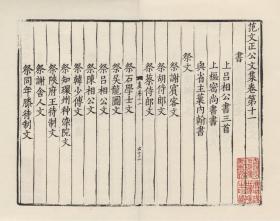 范文正公文集卷第十一
書
上呂相公書三首
上樞密尚書書
與省主葉內翰書
祭文
祭謝賓客文
祭胡侍郎文
祭蔡侍郎文
祭石學士文
祭吳龍圖文
祭呂相公文
祭陳相公文
祭韓少傅文
祭知環州种染院文
祭陝府王待制文
祭謝舍人文
祭同年滕待制文